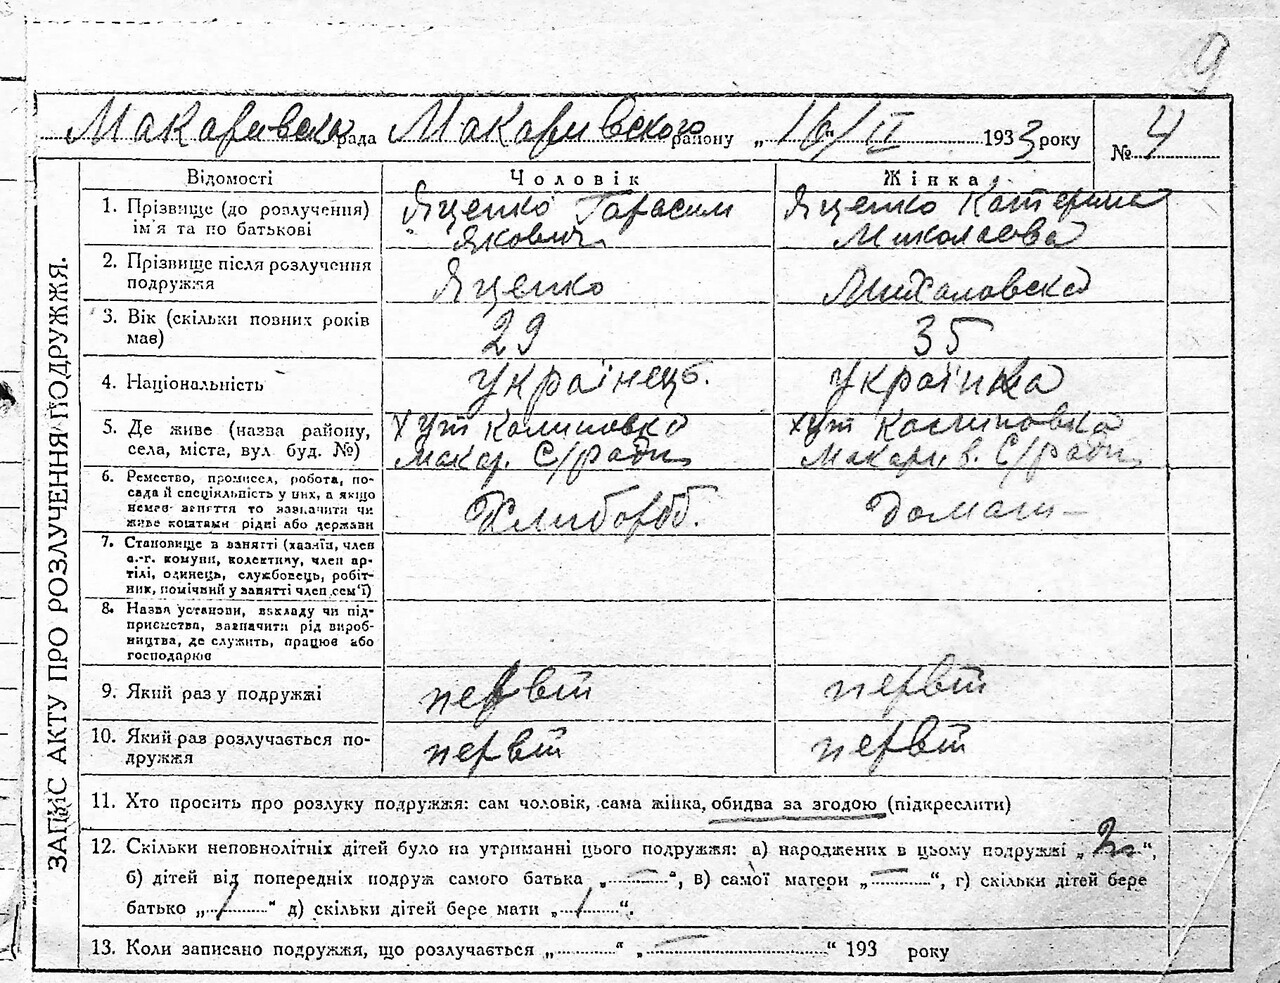 9
Макаривська рада Макаривского району „16/II 1933 року № 4
Відомості Чоловік Жінка
1. Прізвище (до розлучення) ім'я та по батькові Яценко Гарасим Якович Яценко Катерина Миколаєва
2. Прізвище після розлучення подружжя Яценко Михаловска
3. Вік (скільки повних років мав) 29 35
4. Національність українець. українка
5. Де живе (назва району, села, міста, вул. буд. №) Хут Калиновка Макар. С/ради хут Калиновка Макарив. С/ради
6. Ремество, промисел, робота, посада й спеціяльність у них, а якщо немає заняття то зазначити чи живе коштами рідні або держави Хлибороб. Домаш–
7. Становище в занятті (хазяїн, член с.-г. комуни, колективу, член артілі, одинець, службовець, робітник, помічний у занятті член сем'ї)
8. Назва установи, викладу чи підприємства, зазначити рід виробництва, де служить, працює або господарює
9. Який раз у подружжі первий первий
10. Який раз розлучається подружжя первий первий
11. Хто просить про розлуку подружжя: сам чоловік, сама жінка, обидва за згодою (підкреслити)
12. Скільки неповнолітніх дітей було на утриманні цього подружжя: а) народжених в цьому подружжі „2“,
б) дітей від попередніх подруж самого батька „—“, в) самої матери „—“, г) скільки дітей бере
батько „1“ д) скільки дітей бере мати „1“.
13. Коли записано подружжя, що розлучається „ “ „—“ 193 року
ЗАПИС АКТУ ПРО РОЗЛУЧЕННЯ ПОДРУЖЖЯ.